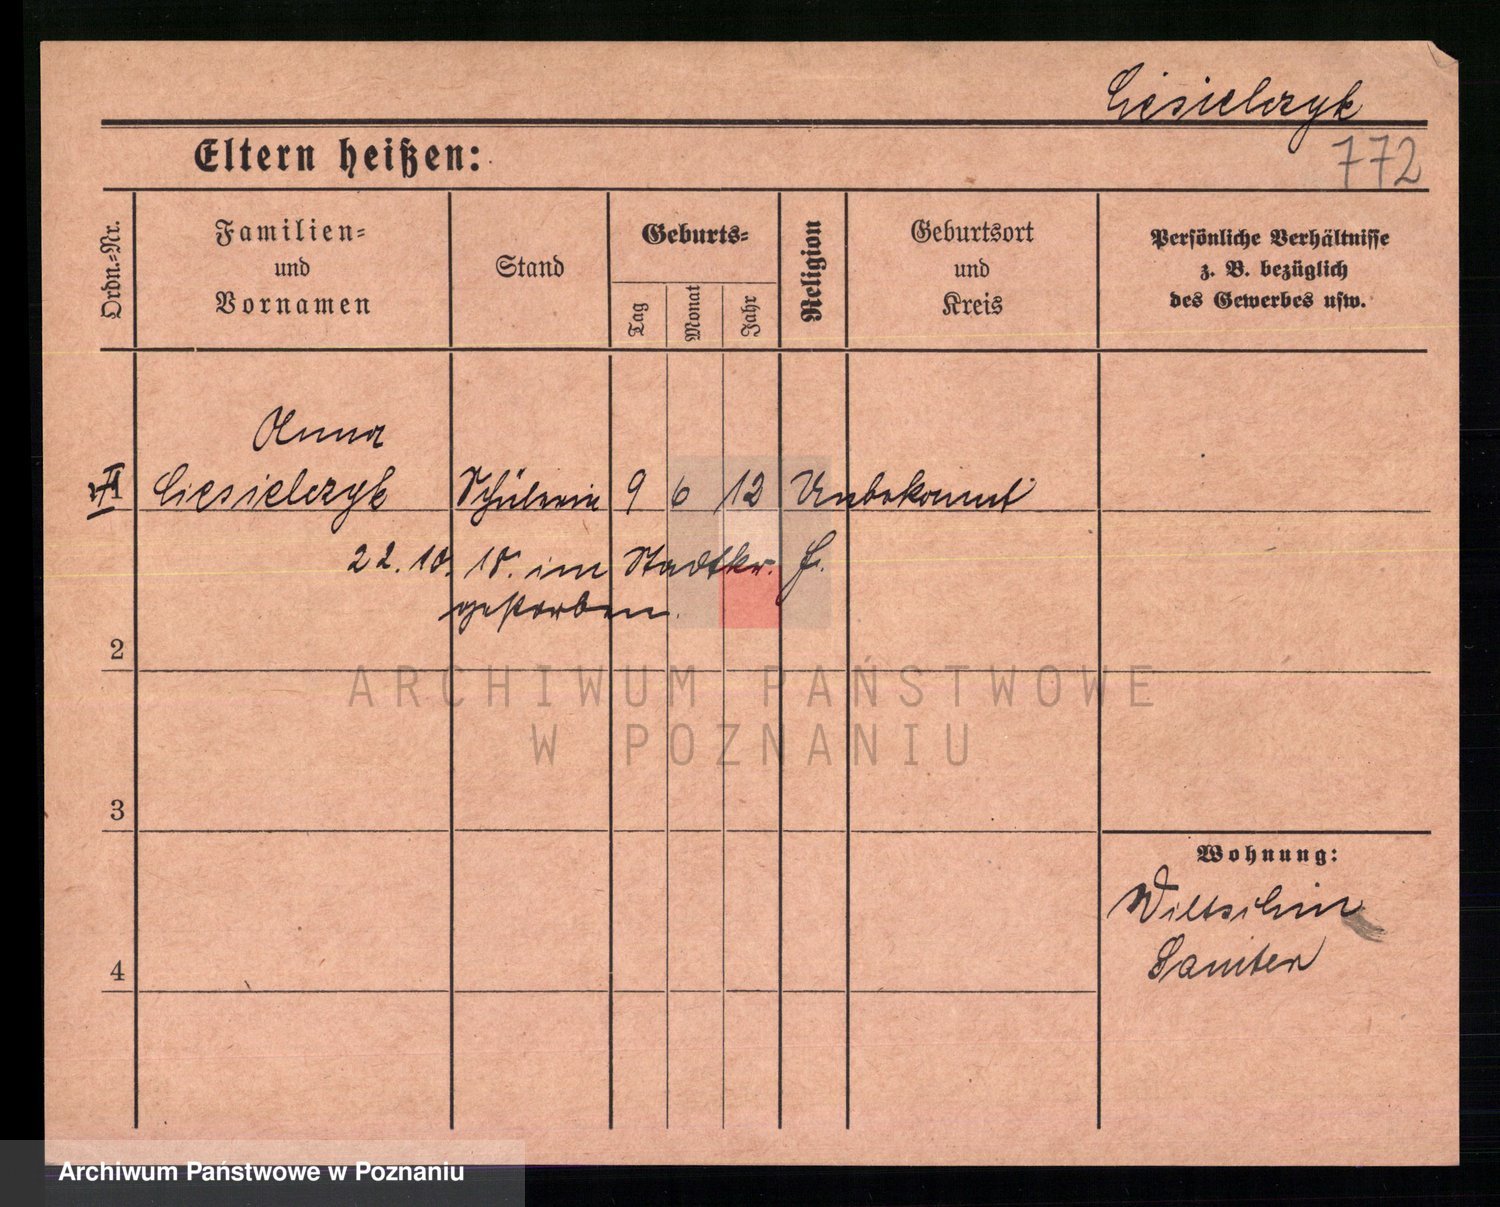 Ciesielczyk
Eltern heißen:
772
Ordn.-Nr.
Familien-
und
Vornamen
Stand
Geburts-
Tag
Monat
Jahr
Religion
Geburtsort
und
Kreis
Persönliche Verhältnisse
z. B. bezüglich
des Gewerbes usw.
Anna
1 Ciesielczyk Schülerin 9 6 12 Unbekannt
22.10.18. im Stadtkr.
gestorben.
2
3
4
Wohnung:
ARCHIWUM PAŃSTWOWE
W POZNANIU
Archiwum Państwowe w Poznaniu